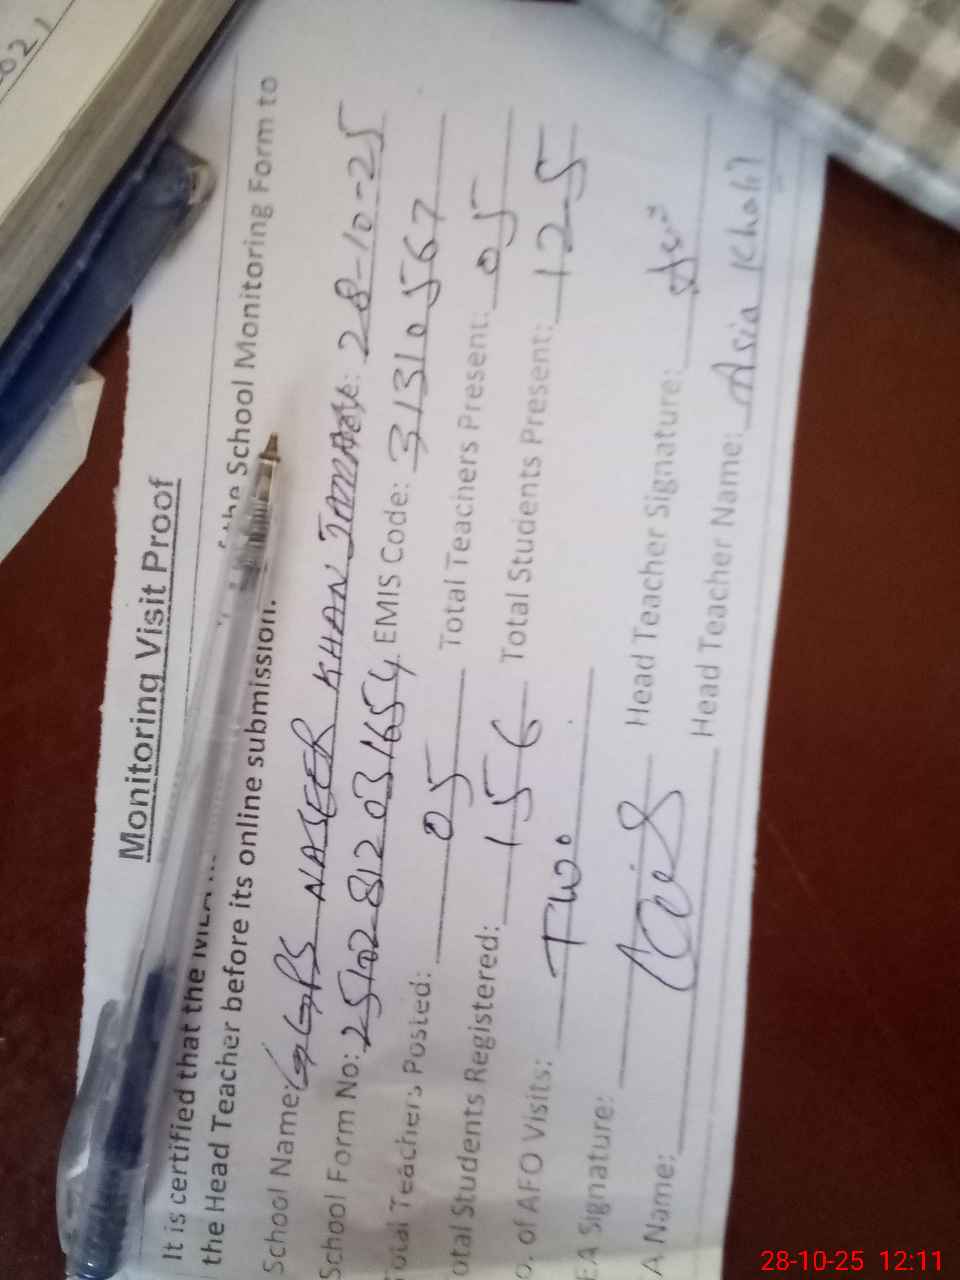 Monitoring Visit Proof
It is certified that the the School Monitoring Form to
the Head Teacher before its online submission.
School Name: GGPS NASEER KHAN Date: 28-10-25
School Form No: 25102812031654 EMIS Code: 31310567
Total Teachers Posted: 05 Total Teachers Present: 05
otal Students Registered: 156 Total Students Present: 125
o. of AFO Visits: Two.
EA Signature: Head Teacher Signature:
A Name: Head Teacher Name: Asia Khali
28-10-25 12:11